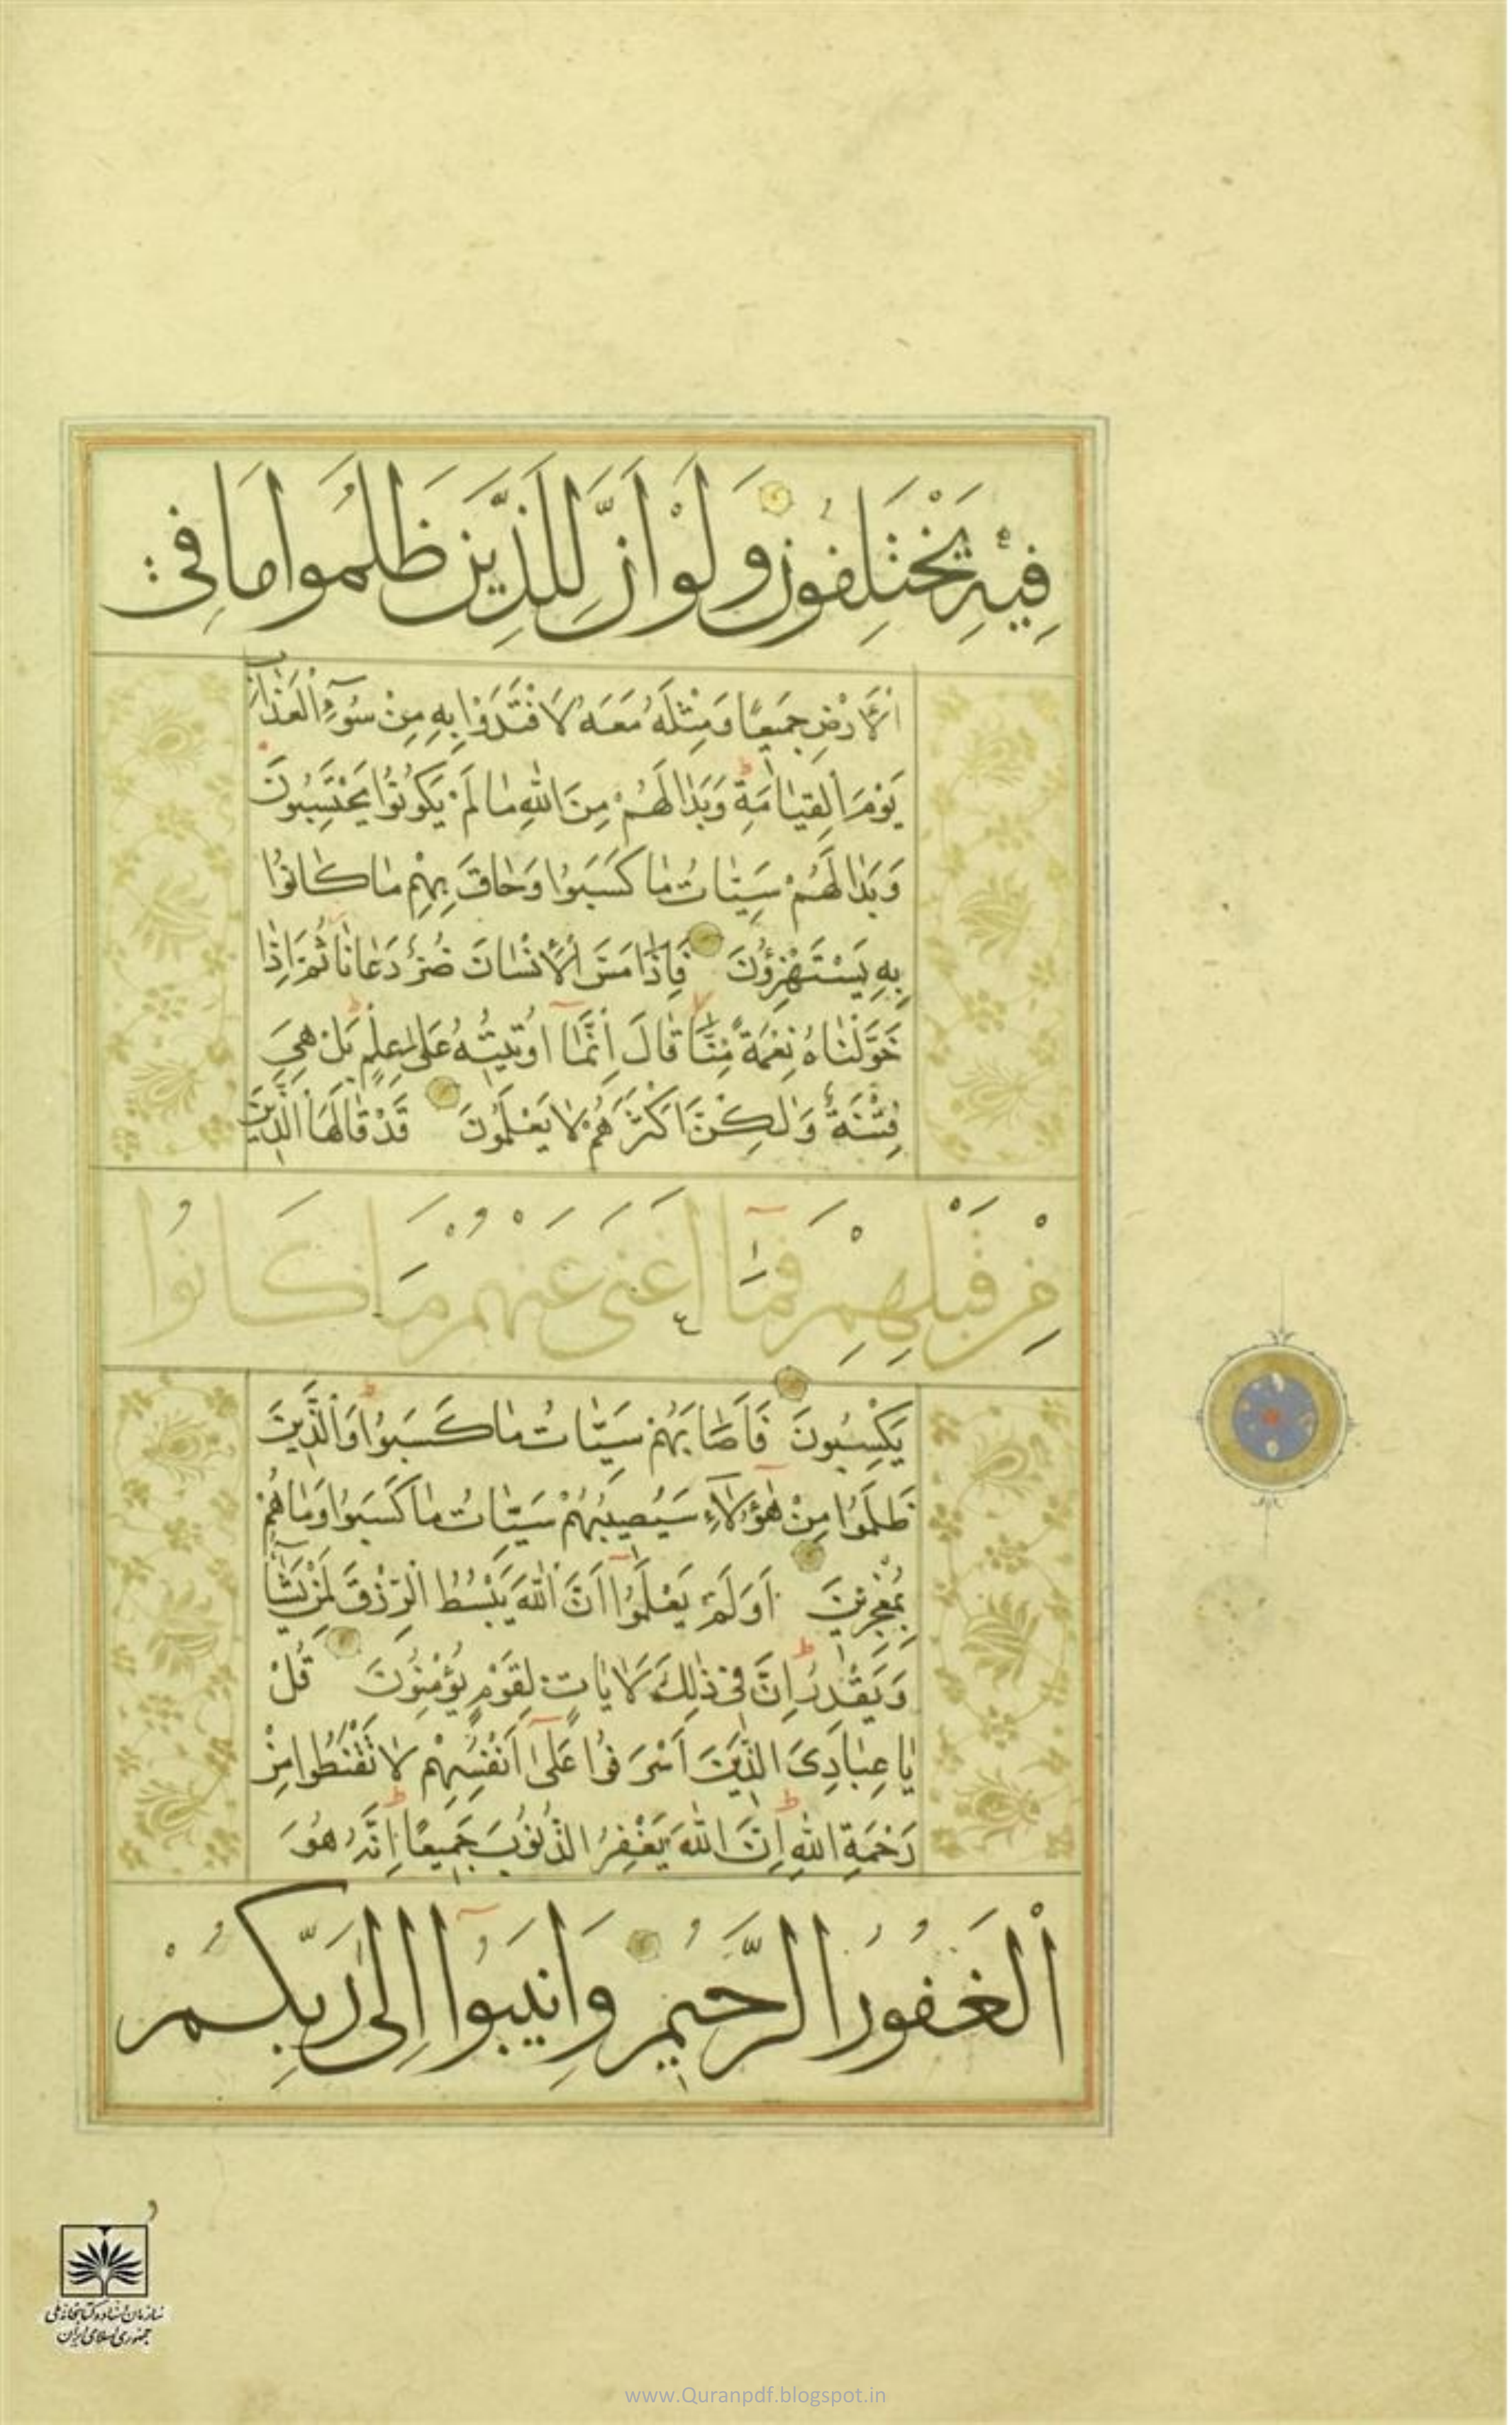 فِيهِ يَخْتَلِفُونَ وَلَوْ اَنَّ لِلَّذِينَ ظَلَمُوا مَا فِي
اْلاَرْضِ جَمِيعًا وَمِثْلَهُ مَعَهُ لَافْتَدَوْا بِهِ مِنْ سُوۤءِ الْعَذَابِ
يَوْمَ الْقِيَامَةِ وَبَدَا لَهُمْ مِنَ اللهِ مَا لَمْ يَكُونُوا يَحْتَسِبُونَ
وَبَدَا لَهُمْ سَيِّئَاتُ مَا كَسَبُوا وَحَاقَ بِهِمْ مَا كَانُوا
بِهِ يَسْتَهْزِؤُنَ فَاِذَا مَسَّ اْلاِنْسَانَ ضُرٌّ دَعَانَا ثُمَّ اِذَا
خَوَّلْنَاهُ نِعْمَةً مِنَّا قَالَ اِنَّمَاۤ اُوتِيتُهُ عَلَى عِلْمٍ بَلْ هِيَ
فِتْنَةٌ وَلٰكِنَّ اَكْثَرَهُمْ لَا يَعْلَمُونَ قَدْ قَالَهَا الَّذِينَ
مِنْ قَبْلِهِمْ فَمَاۤ اَغْنَى عَنْهُمْ مَا كَانُوا
يَكْسِبُونَ فَاَصَابَهُمْ سَيِّئَاتُ مَا كَسَبُوا وَالَّذِينَ
ظَلَمُوا مِنْ هٰۤؤُلَاۤءِ سَيُصِيبُهُمْ سَيِّئَاتُ مَا كَسَبُوا وَمَا هُمْ
بِمُعْجِزِينَ اَوَلَمْ يَعْلَمُوۤا اَنَّ اللهَ يَبْسُطُ الرِّزْقَ لِمَنْ يَشَاۤءُ
وَيَقْدِرُ اِنَّ فِي ذٰلِكَ لَاٰيَاتٍ لِقَوْمٍ يُؤْمِنُونَ قُلْ
يَا عِبَادِيَ الَّذِينَ اَسْرَفُوا عَلَىۤ اَنْفُسِهِمْ لَا تَقْنَطُوا مِنْ
رَحْمَةِ اللهِ اِنَّ اللهَ يَغْفِرُ الذُّنُوبَ جَمِيعًا اِنَّهُ هُوَ
اْلغَفُورُ الرَّحِيمُ وَاَنِيبُوۤا اِلَى رَبِّكُمْ
سازمان اسناد و کتابخانه ملی
جمهوری اسلامی ایران
www.Quranpdf.blogspot.in